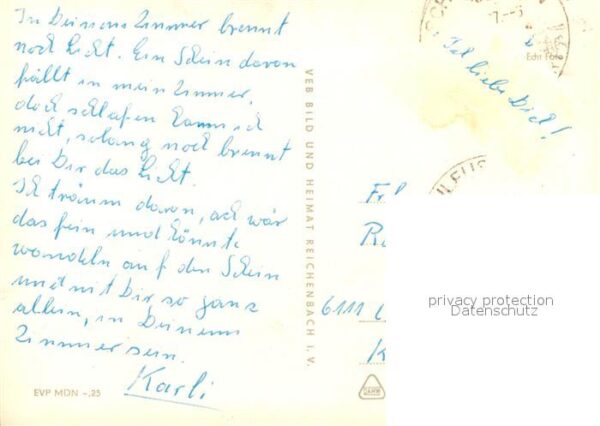 In Deinem Zimmer brennt
noch Licht. Ein Schein davon
fällt in mein Zimmer,
doch schlafen kann ich
nicht, solang noch brennt
bei Dir das Licht.
Ich träum davon, ach wär
das fein und könnte
wandeln auf den Schein
und mit Dir, so ganz
allein, in Deinem
Zimmer sein.
Karli
EVP MDN -,25
VEB BILD UND HEIMAT REICHENBACH i. V.
Ich liebe Dich!
Echt Foto
6111
privacy protection
Datenschutz